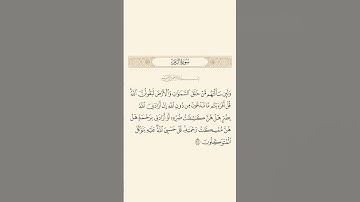 سُورَةُ الزُّمَرِ
بِسْمِ اللَّهِ الرَّحْمَٰنِ الرَّحِيمِ
وَلَئِن سَأَلْتَهُم مَّنْ خَلَقَ السَّمَاوَاتِ وَالْأَرْضَ لَيَقُولُنَّ اللَّهُ
قُلْ أَفَرَأَيْتُم مَّا تَدْعُونَ مِن دُونِ اللَّهِ إِنْ أَرَادَنِيَ اللَّهُ
بِضُرٍّ هَلْ هُنَّ كَاشِفَاتُ ضُرِّهِ أَوْ أَرَادَنِي بِرَحْمَةٍ هَلْ
هُنَّ مُمْسِكَاتُ رَحْمَتِهِ قُلْ حَسْبِيَ اللَّهُ عَلَيْهِ يَتَوَكَّلُ
الْمُتَوَكِّلُونَ